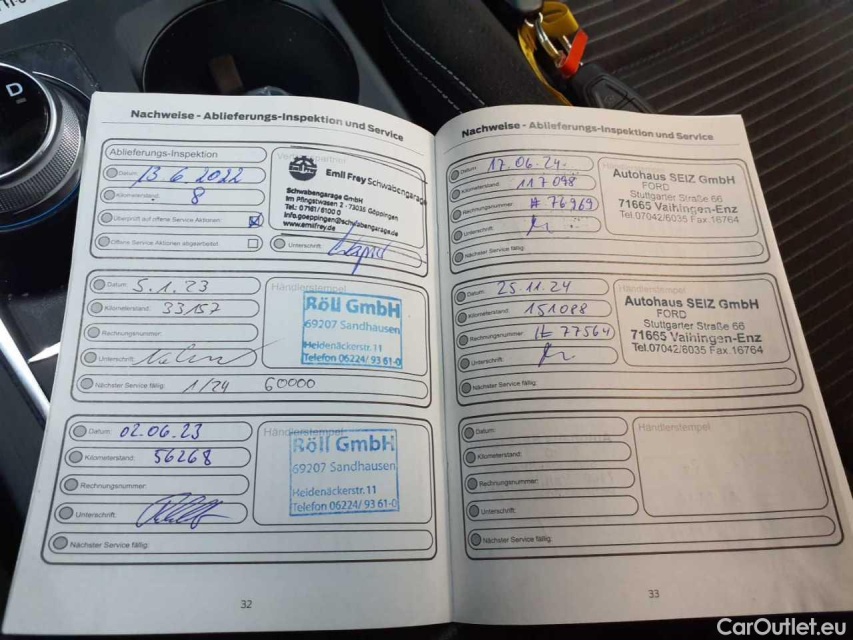 D
Nachweise - Ablieferungs-Inspektion und Service
Ablieferungs-Inspektion
Datum: 13.6.2022
Kilometerstand: 8
Überprüft auf offene Service Aktionen:
Offene Service Aktionen abgearbeitet:
Emil Frey
Emil Frey Schwabengarage
Schwabengarage GmbH
Im Pfingstwasen 2 - 73035 Göppingen
Tel.: 07161/6100 0
info.goeppingen@schwabengarage.de
www.emilfrey.de
Unterschrift:
Datum: 5.1.23
Kilometerstand: 33157
Rechnungsnummer:
Unterschrift:
Nächster Service fällig: 1/24 60000
Händlerstempel
Röll GmbH
69207 Sandhausen
Heidenäckerstr. 11
Telefon 06224/ 93 61-0
Datum: 02.06.23
Kilometerstand: 56268
Rechnungsnummer:
Unterschrift:
Nächster Service fällig:
Händlerstempel
Röll GmbH
69207 Sandhausen
Heidenäckerstr. 11
Telefon 06224/ 93 61-0
32
Nachweise - Ablieferungs-Inspektion und Service
Datum: 17.06.24
Kilometerstand: 117098
Rechnungsnummer: # 76969
Unterschrift:
Nächster Service fällig:
Autohaus SEIZ GmbH
FORD
Stuttgarter Straße 66
71665 Vaihingen-Enz
Tel.07042/6035 Fax.16764
Datum: 25.11.24
Kilometerstand: 151088
Rechnungsnummer: # 77564
Unterschrift:
Nächster Service fällig:
Autohaus SEIZ GmbH
FORD
Stuttgarter Straße 66
71665 Vaihingen-Enz
Tel.07042/6035 Fax.16764
Datum:
Kilometerstand:
Rechnungsnummer:
Unterschrift:
Nächster Service fällig:
Händlerstempel
33
CarOutlet.eu